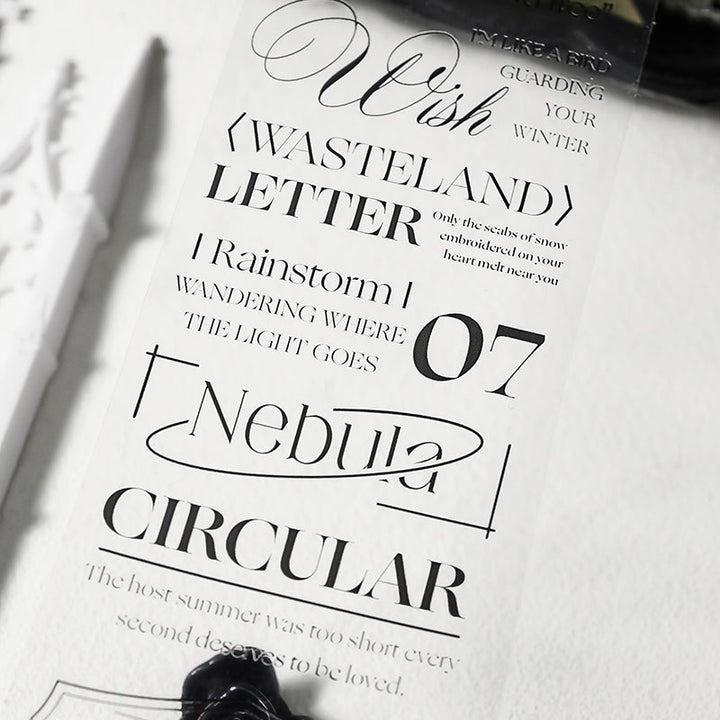 Wish
I'M LIKE A BIRD
GUARDING
YOUR
WINTER
⟨WASTELAND⟩
LETTER
Only the scabs of snow
embroidered on your
heart melt near you
| Rainstorm |
WANDERING WHERE
THE LIGHT GOES
07
Nebula
CIRCULAR
The host summer was too short every
second deserves to be loved.